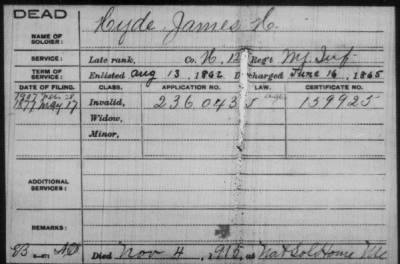 DEAD
NAME OF SOLDIER: Hyde, James H.
SERVICE: Late rank, Co. H, 12 Reg't Inf.
TERM OF SERVICE: Enlisted Aug 13, 1862 Discharged June 16, 1865
DATE OF FILING. CLASS. APPLICATION NO. LAW. CERTIFICATE NO.
1877 May 17 Invalid, 236043 159925
Widow,
Minor,
ADDITIONAL SERVICES:
REMARKS:
Died Nov 4, 191 at Nat Sol Home Me